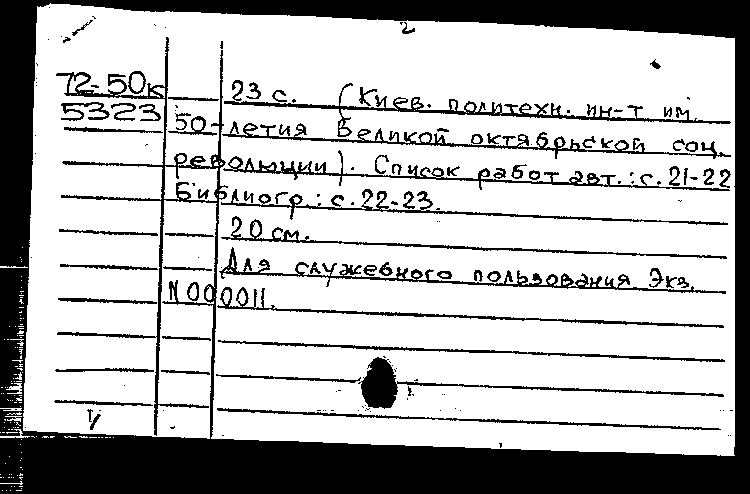 2
72-50к 23 с. (Киев. политехн. ин-т им.
5323 50-летия Великой октябрьской соц.
революции). Список работ авт.: с. 21-22
Библиогр.: с. 22-23.
20 см.
Для служебного пользования Экз.
N 000011.